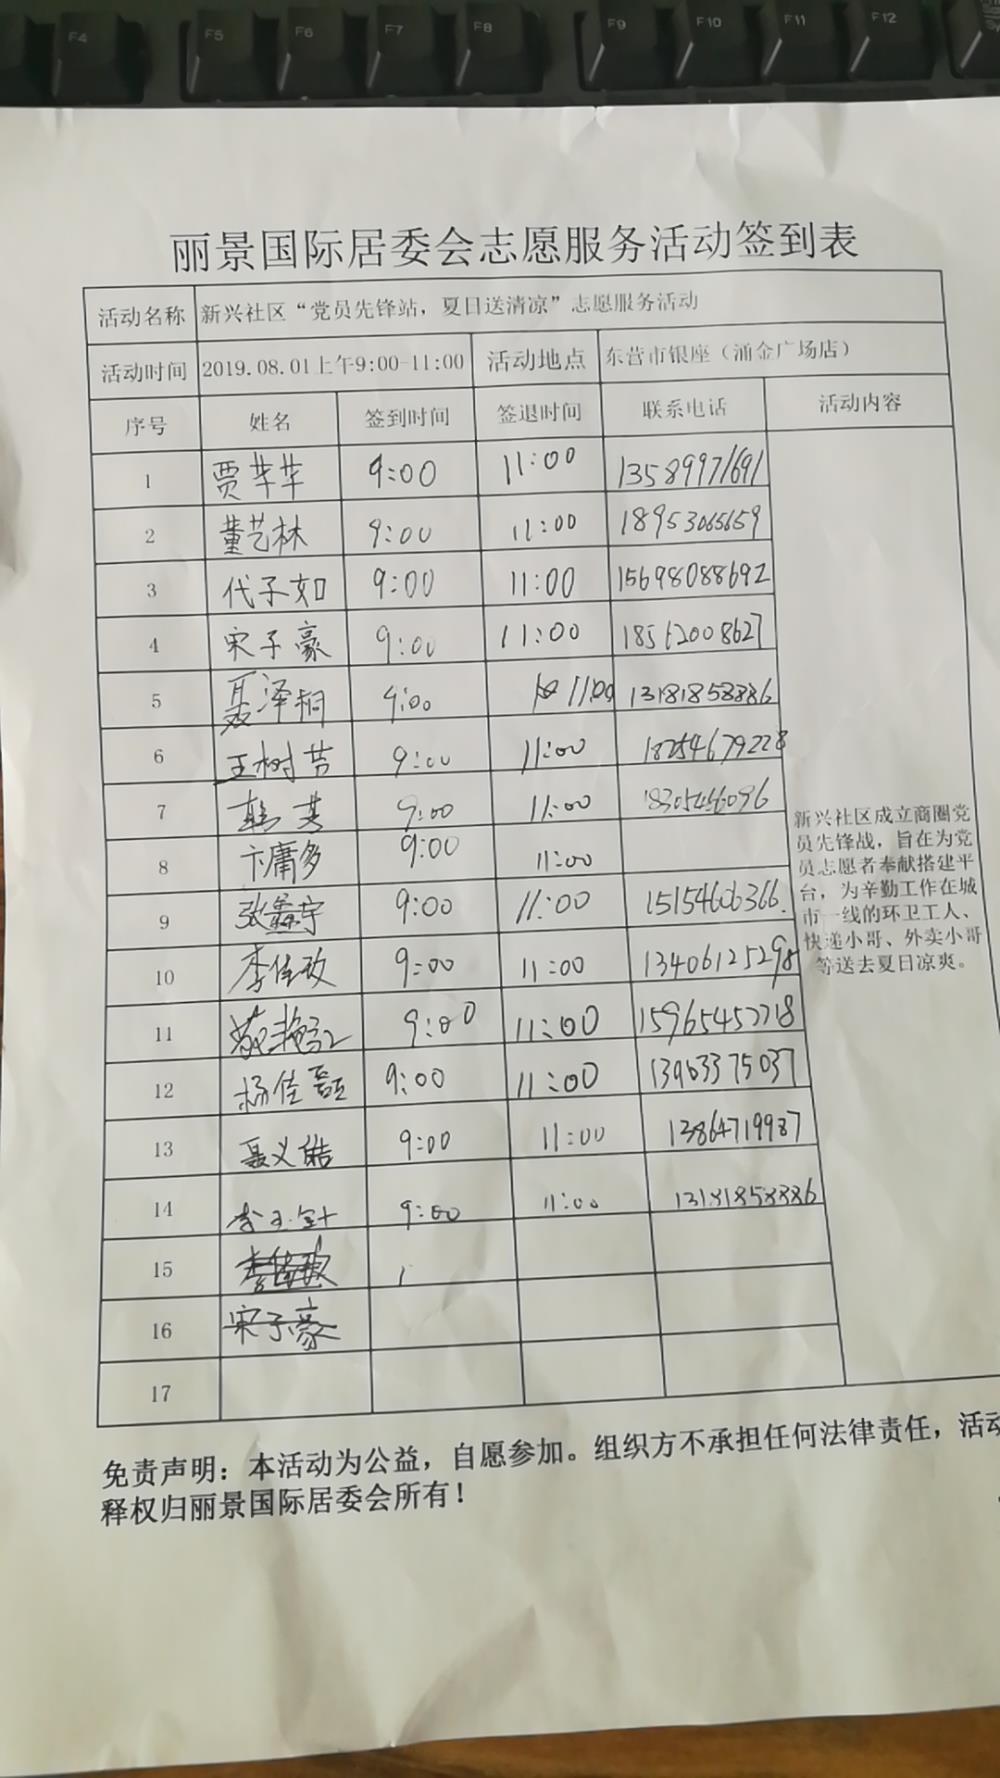 F4 F5 F6 F7 F8 F9 F10 F11 F12
丽景国际居委会志愿服务活动签到表
活动名称 新兴社区“党员先锋站，夏日送清凉”志愿服务活动
活动时间 2019.08.01上午9:00-11:00 活动地点 东营市银座（涌金广场店）
序号 姓名 签到时间 签退时间 联系电话 活动内容
1 贾芊芊 9:00 11:00 13589971691
2 董艺林 9:00 11:00 18953065659
3 代子如 9:00 11:00 15698088692
4 宋子豪 9:00 11:00 18562008627
5 聂泽桐 9:00 11:00 13181858886
6 王树芳 9:00 11:00 18254679228
7 韩英 9:00 11:00 18305466096
8 卞庸多 9:00 11:00
9 张鑫宇 9:00 11:00 15154606366.
10 李佳玫 9:00 11:00 13406125298
11 9:00 11:00 15965452718
12 杨佳 9:00 11:00 13963375037
13 聂义皓 9:00 11:00 13864719987
14 李玉针 9:00 11:00 13181858886
15
16 宋子豪
17
新兴社区成立商圈党
员先锋战，旨在为党
员志愿者奉献搭建平
台，为辛勤工作在城
市一线的环卫工人、
快递小哥、外卖小哥
等送去夏日凉爽。
免责声明：本活动为公益，自愿参加。组织方不承担任何法律责任，活动
释权归丽景国际居委会所有！